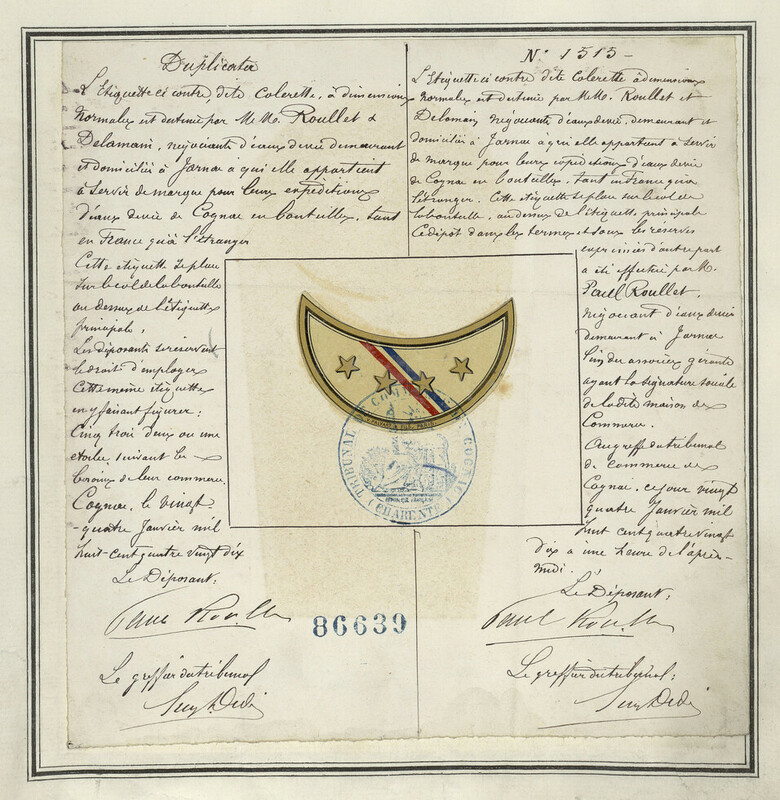 Duplicata
L'Etiquette ci contre, dite Colerette, à dimensions
normales est destinée par M.M. Roullet &
Delamain, négociants d'eaux de vie demeurant
et domiciliés à Jarnac à qui elle appartient
à servir de marque pour leurs expéditions
d'eaux de vie de Cognac en bouteilles, tant
en France qu'à l'étranger
Cette étiquette se place
sur le col de la bouteille
au dessus de l'étiquette
principale.
Les déposants se réservent
le droit d'employer
Cette même étiquette
en y faisant figurer:
Cinq trois deux ou une
étoiles suivant les
besoins de leur commerce.
Cognac, le vingt
-quatre Janvier mil
huit-cent quatre vingt dix
Le Déposant,
Paul Roullet
Le greffier du tribunal
N° 1515-
L'Etiquette ci contre dite Colerette à dimensions
normales est destinée par M.M. Roullet et
Delamain négociants d'eaux de vie, demeurant et
domiciliés à Jarnac à qui elle appartient à servir
de marque pour leurs expéditions d'eaux de vie
de Cognac en bouteilles, tant en France qu'à
l'étranger. Cette étiquette se place sur le col de
la bouteille, au dessus de l'étiquette principale
Ce dépôt dans les termes et sous les réserves
exprimées d'autre part
a été effectué par M.
Paul Roullet,
négociant d'eaux de vie
demeurant à Jarnac
l'un des associés gérants
ayant la signature sociale
de la dite maison de
Commerce.
Au greffe du tribunal
de commerce de
Cognac, ce jour vingt
quatre Janvier mil
huit cent quatre vingt
dix à une heure de l'après-
midi.
Le Déposant:
Paul Roullet
Le greffier du tribunal:
& FILS, PARIS
TRIBUNAL COGNAC
RÉPUBLIQUE FRANÇAISE
(CHARENTE)
86639